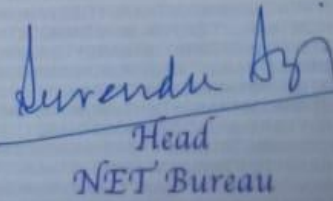 Surendu
Head
NET Bureau